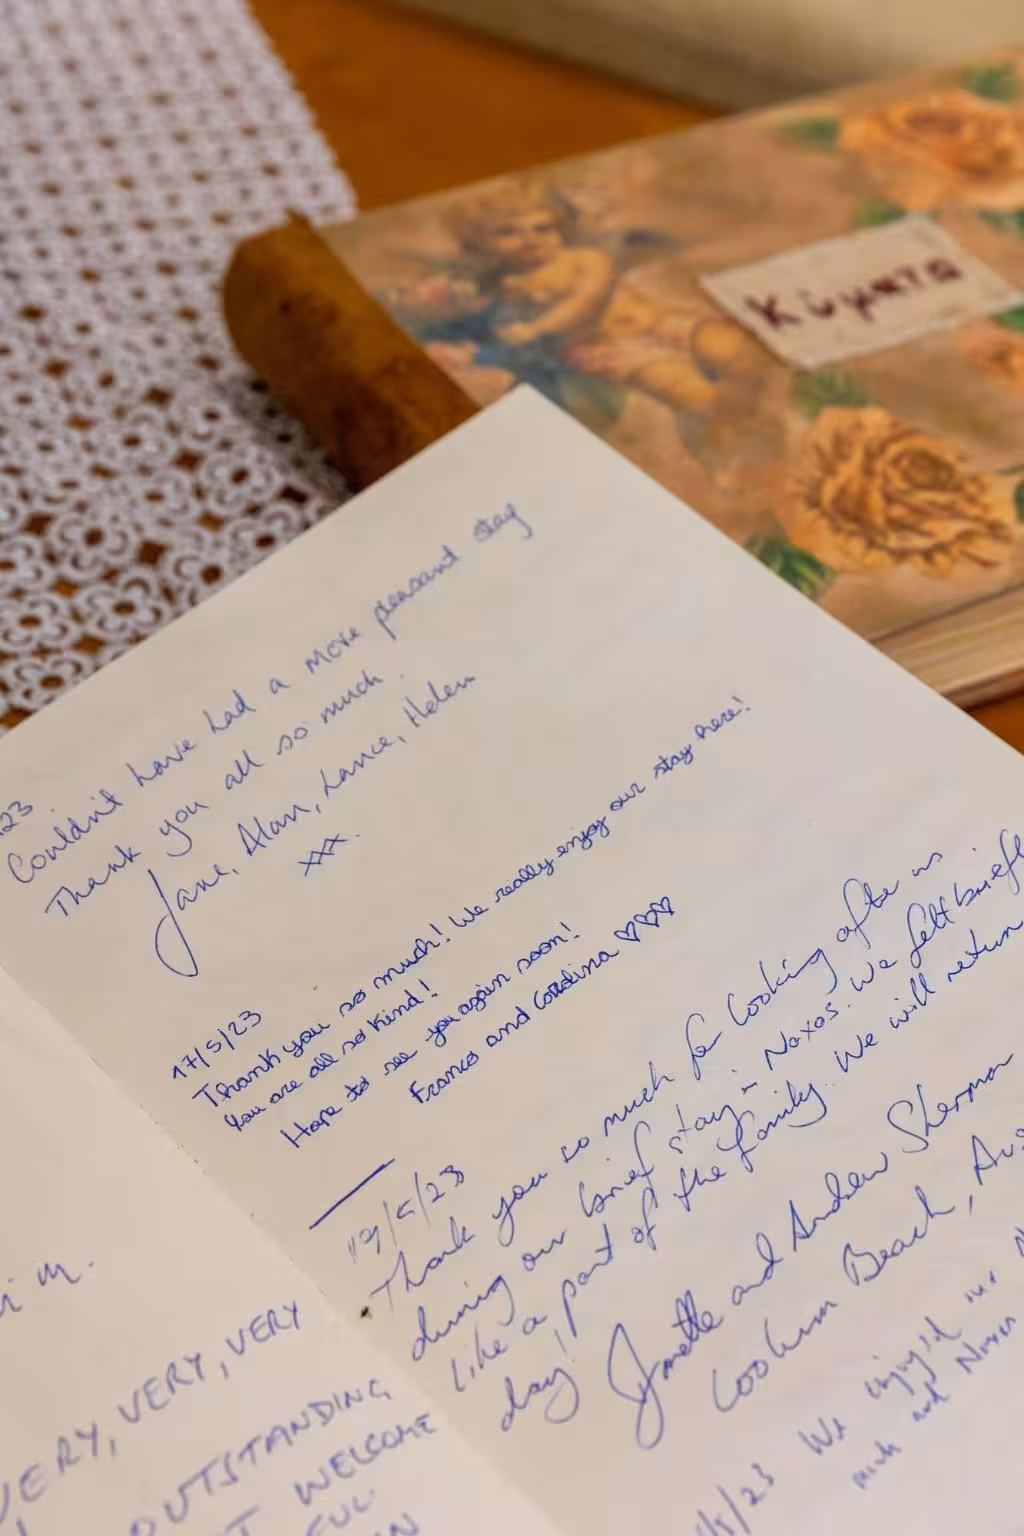 Κύματα
23
Couldn't have had a more pleasant stay
Thank you all so much.
Jane, Alan, Lance, Helen
xxx.
17/5/23
Thank you so much! We really enjoy our stay here!
You are all so kind!
Hope to see you again soon!
Franco and Carolina ♡♡♡
19/5/23
Thank you so much for looking after us
during our brief stay in Naxos. We felt
like a part of the family. We will return
day!
Janette and Andrew Sherman
Coolum Beach,
/5/23 We enjoyed
much and Naxos
VERY, VERY, VERY
OUTSTANDING
WELCOME